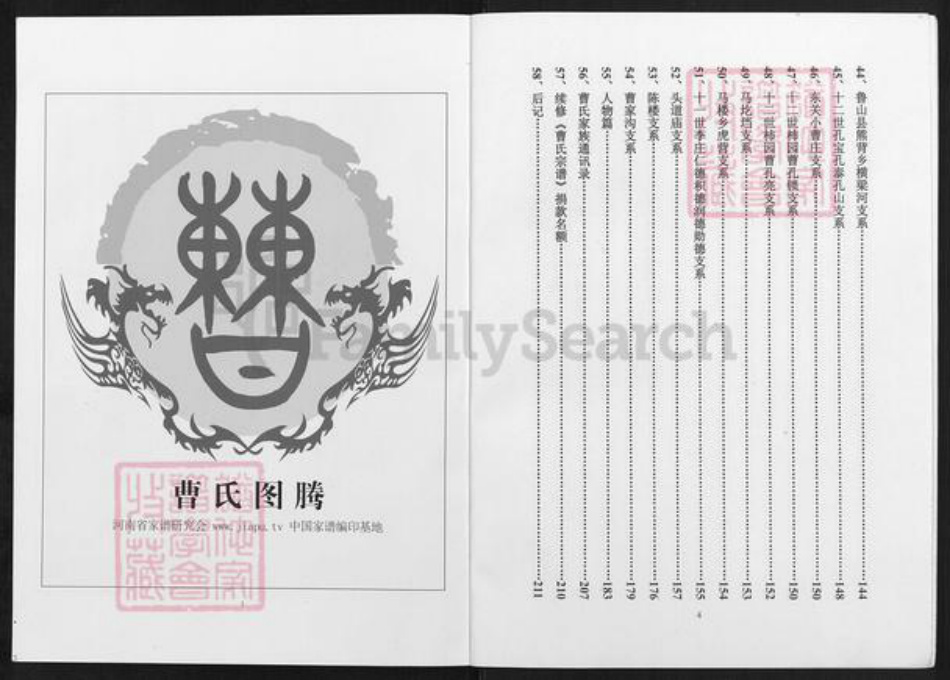 曹氏图腾
河南省家谱研究会 www.jiapu.tv 中国家谱编印基地
FamilySearch
44、鲁山县熊背乡横梁河支系……144
45、十二世孔宝孔泰孔山支系……148
46、东关小曹庄支系……150
47、十二世柿园曹孔锁支系……150
48、十二世柿园曹孔亮支系……152
49、马圪垱支系……153
50、马楼乡虎营支系……154
51、十一世李庄仁德积德润德勋德支系……155
52、头道庙支系……157
53、陈楼支系……176
54、曹家沟支系……179
55、人物篇……183
56、曹氏家族通讯录……207
57、续修《曹氏宗谱》捐款名额……210
58、后记……211
4